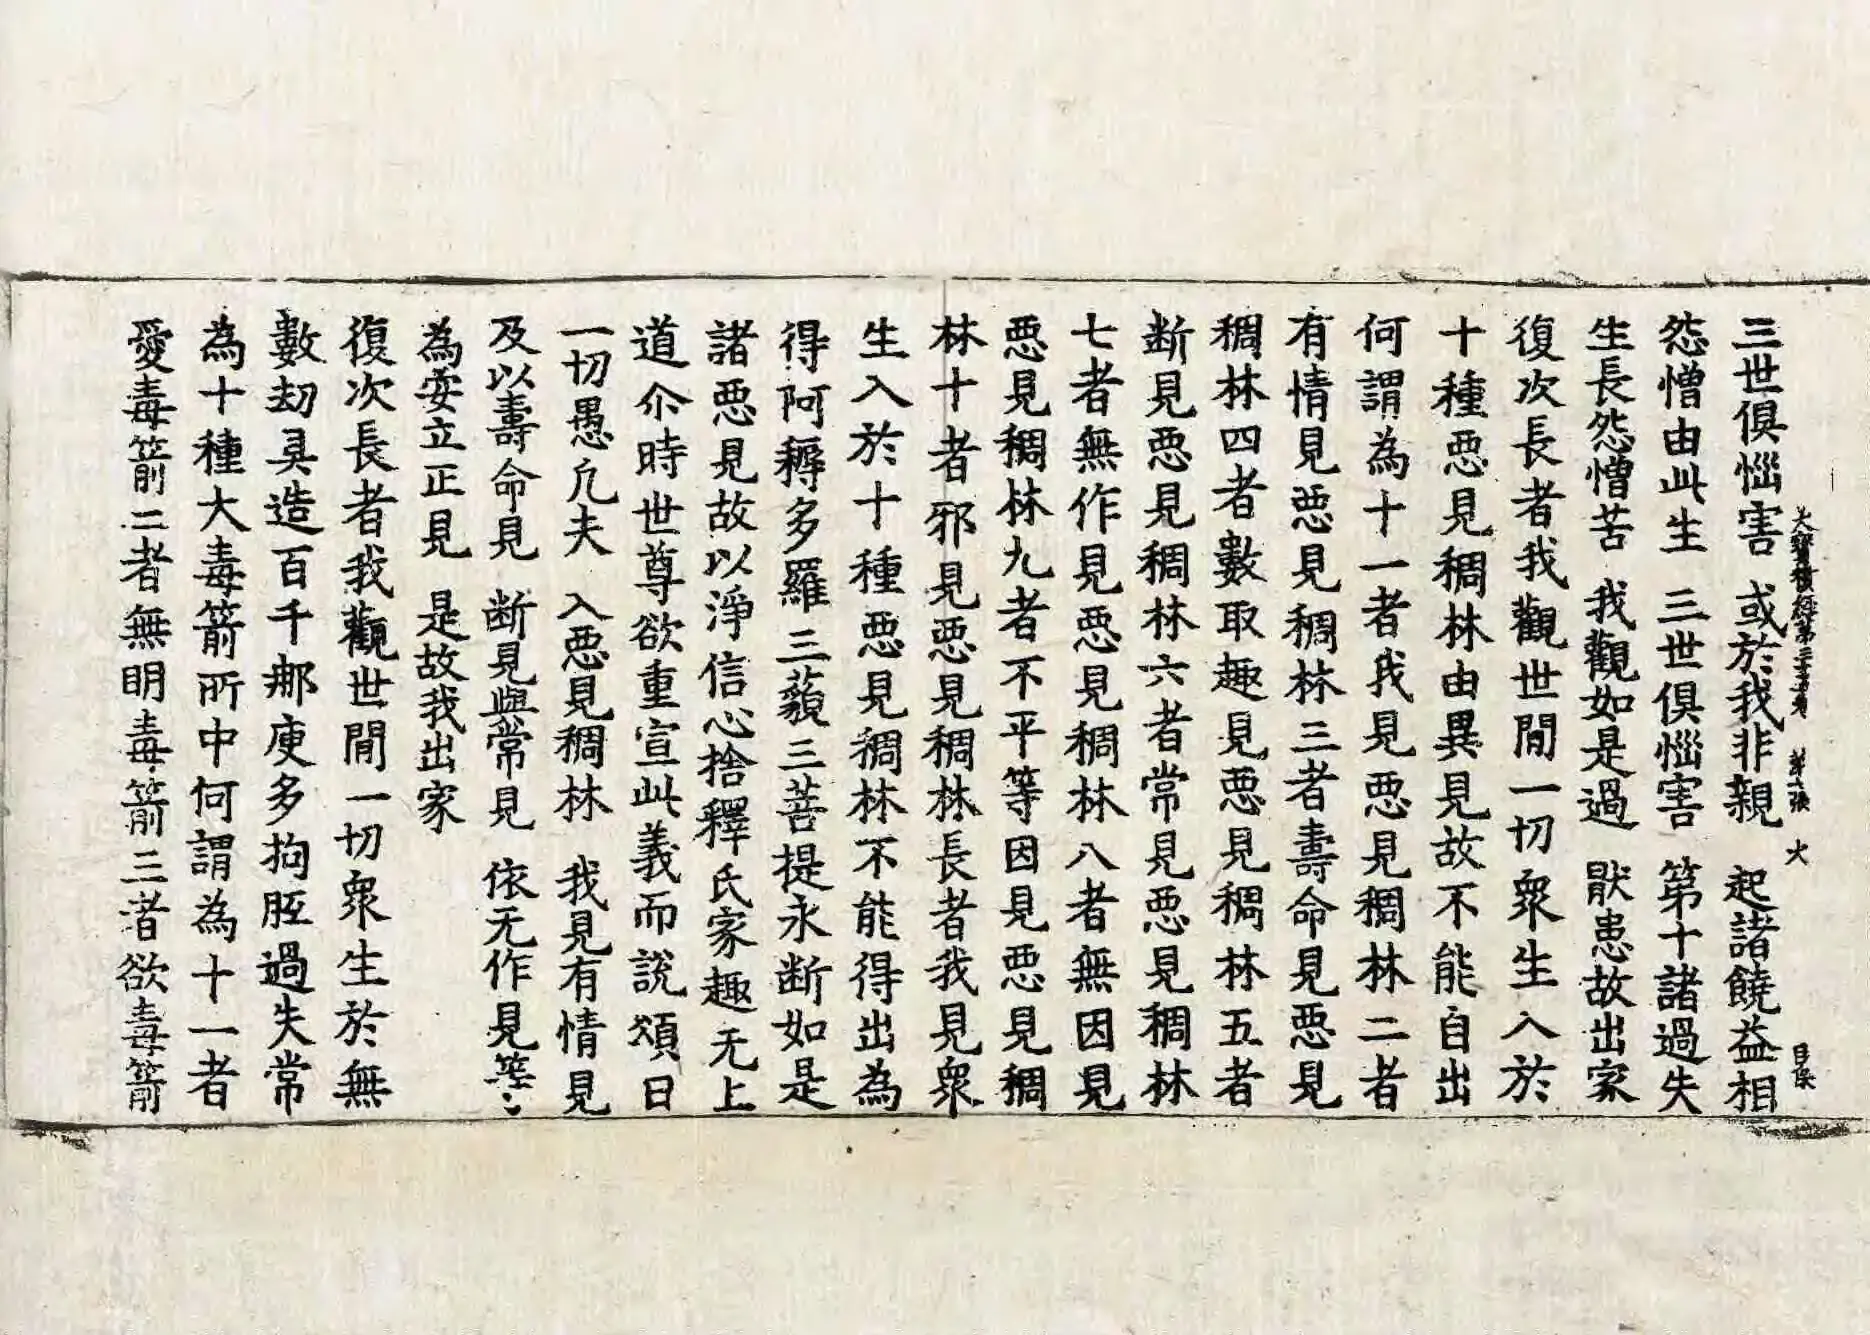 大寶積經第三十五卷 第二張 火
三世俱惱害 或於我非親 起諸饒益相
怨憎由此生 三世俱惱害 第十諸過失
生長怨憎苦 我觀如是過 猒患故出家
復次長者我觀世間一切衆生入於
十種惡見稠林由異見故不能自出
何謂為十一者我見惡見稠林二者
有情見惡見稠林三者壽命見惡見
稠林四者數取趣見惡見稠林五者
断見惡見稠林六者常見惡見稠林
七者無作見惡見稠林八者無因見
惡見稠林九者不平等因見惡見稠
林十者邪見惡見稠林長者我見衆
生入於十種惡見稠林不能得出為
得阿耨多羅三藐三菩提永断如是
諸惡見故以淨信心捨釋氏家趣无上
道尒時世尊欲重宣此義而說頌曰
一切愚凢夫 入惡見稠林 我見有情見
及以壽命見 断見與常見 依无作見等
為安立正見 是故我出家
復次長者我觀世間一切衆生於無
數劫具造百千那庾多拘胝過失常
為十種大毒箭所中何謂為十一者
愛毒箭二者無明毒箭三者欲毒箭